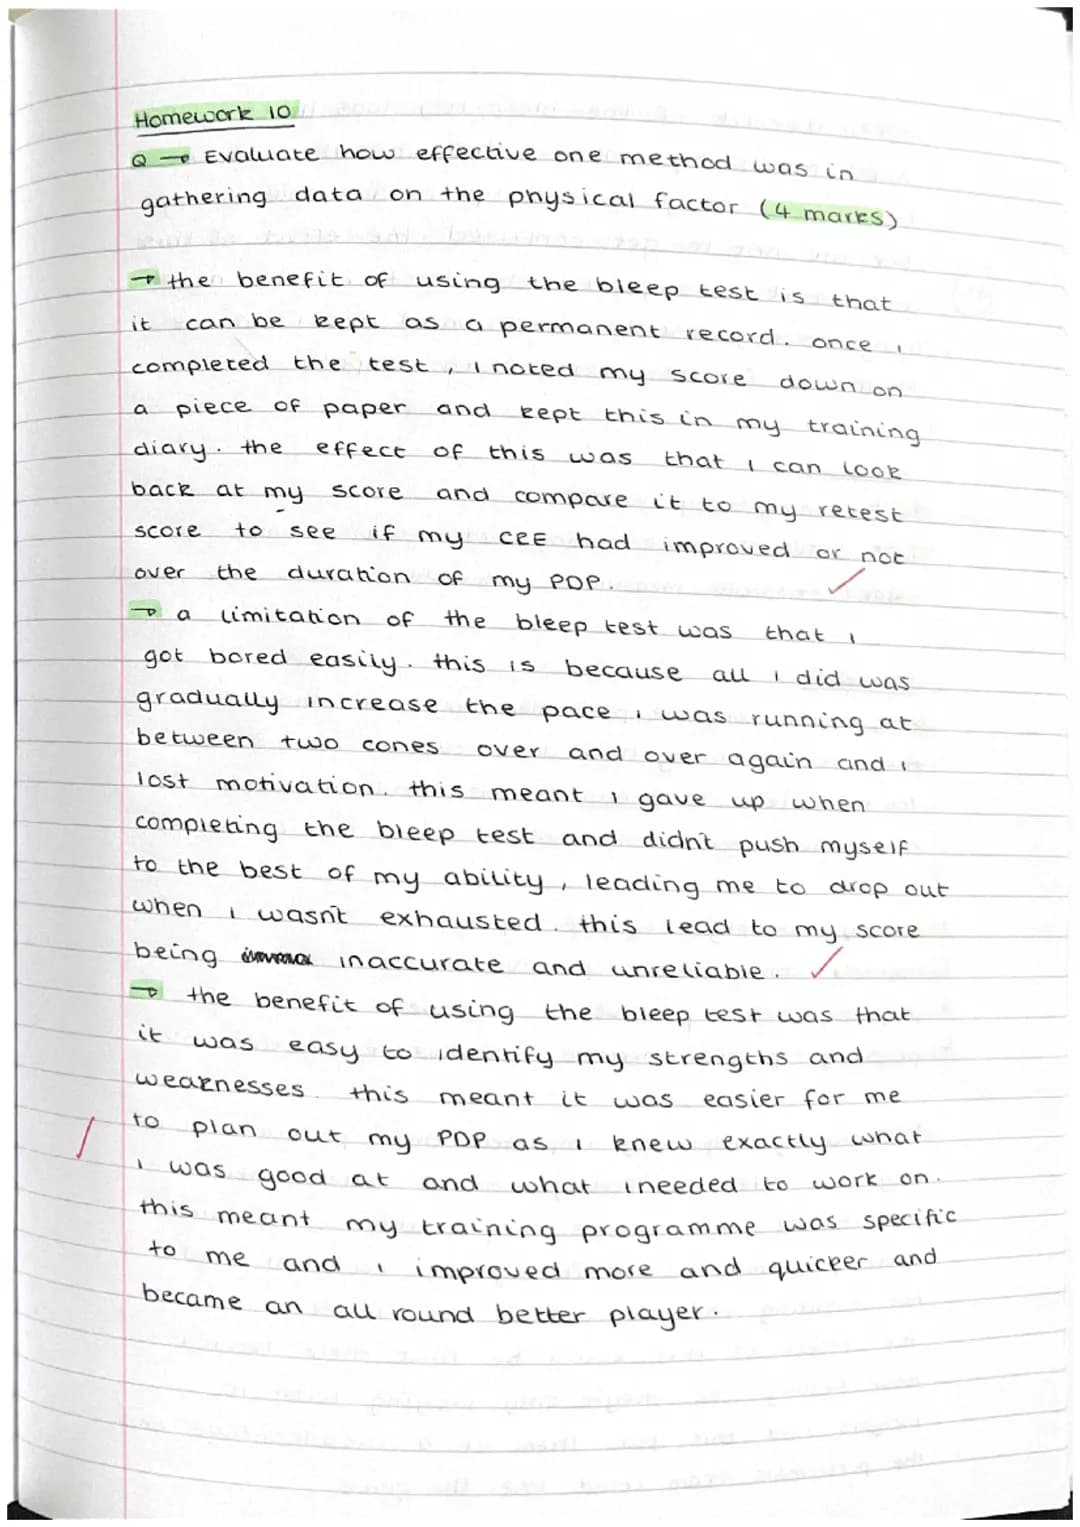 Homework 10
Q → Evaluate how effective one method was in
gathering data on the physical factor (4 marks)
→ the benefit of using the bleep test is that
it can be kept as a permanent record. once i
completed the test, i noted my score down on
a piece of paper and kept this in my training
diary. the effect of this was that i can look
back at my score and compare it to my retest
score to see if my CRE had improved or not
over the duration of my PDP.
→ a limitation of the bleep test was that i
got bored easily. this is because all i did was
gradually increase the pace i was running at
between two cones over and over again and i
lost motivation. this meant i gave up when
completing the bleep test and didn't push myself
to the best of my ability, leading me to drop out
when i wasn't exhausted. this lead to my score
being inaccurate and unreliable.
→ the benefit of using the bleep test was that
it was easy to identify my strengths and
weaknesses. this meant it was easier for me
to plan out my PDP as i knew exactly what
i was good at and what i needed to work on.
this meant my training programme was specific
to me and i improved more and quicker and
became an all round better player.